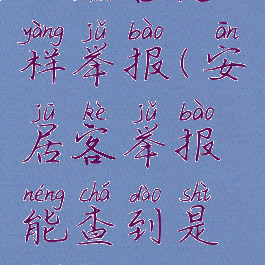 yàng jǔ bào ān
样举报(安
jū kè jǔ bào
居客举报
néng chá dào shì
能查到是